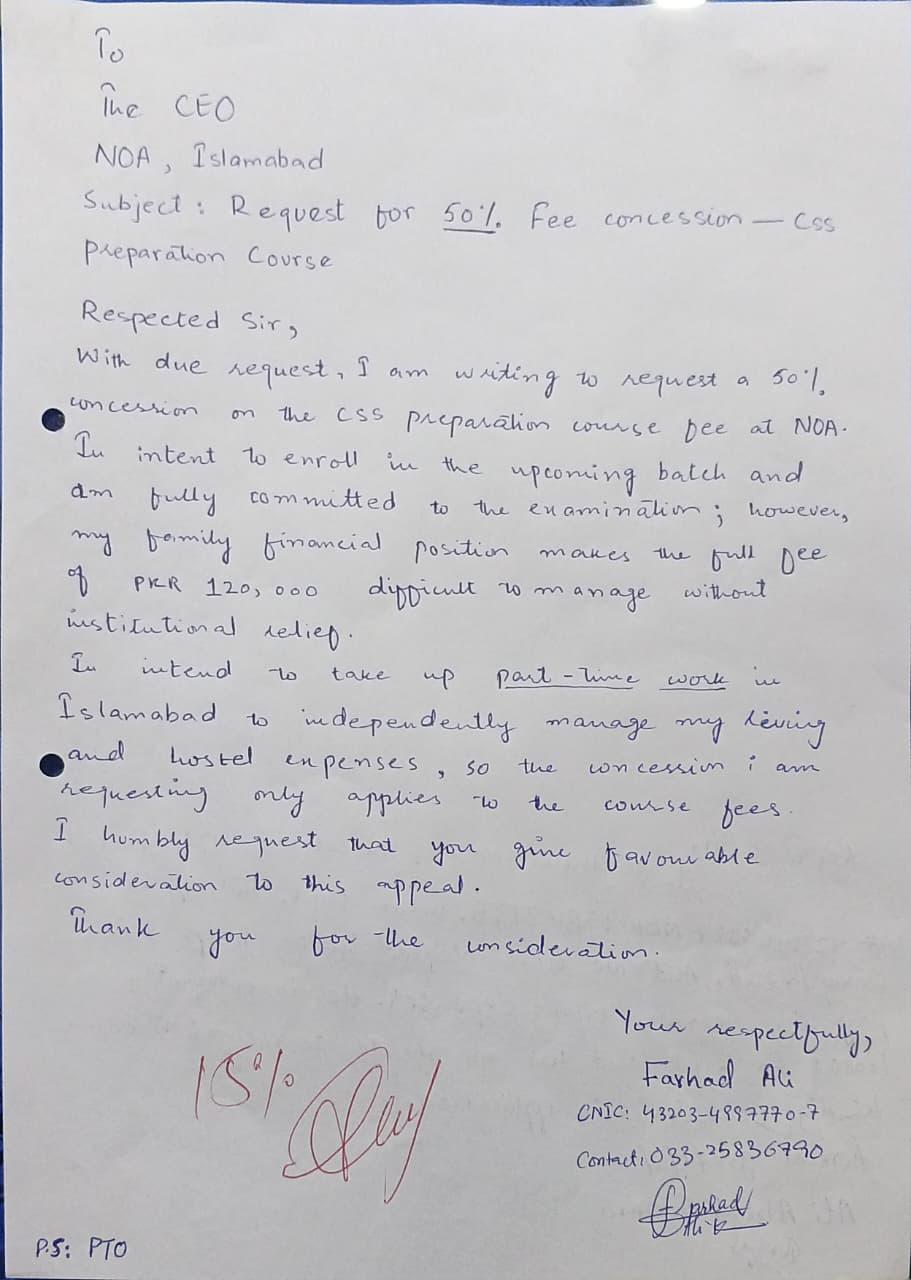 To
The CEO
NOA, Islamabad
Subject: Request for 50%. Fee concession — Css
Preparation Course
Respected Sir,
With due request, I am writing to request a 50%.
concession on the CSS preparation course fee at NOA.
In intent to enroll in the upcoming batch and
am fully committed to the examination; however,
my family financial position makes the full fee
of PKR 120,000 difficult to manage without
institutional relief.
In intend to take up part-time work in
Islamabad to independently manage my living
and hostel expenses, so the concession i am
requesting only applies to the course fees.
I humbly request that you give favourable
consideration to this appeal.
Thank you for the consideration.
Your respectfully,
Farhad Ali
CNIC: 43203-4997770-7
Contact: 033-25836790
Farhad
Ali
15%
P.S: PTO